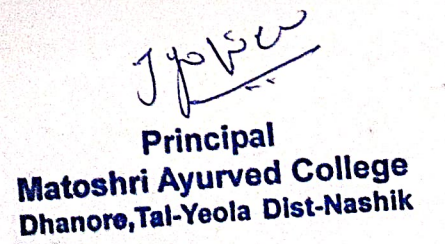 Principal
Matoshri Ayurved College
Dhanore,Tal-Yeola Dist-Nashik